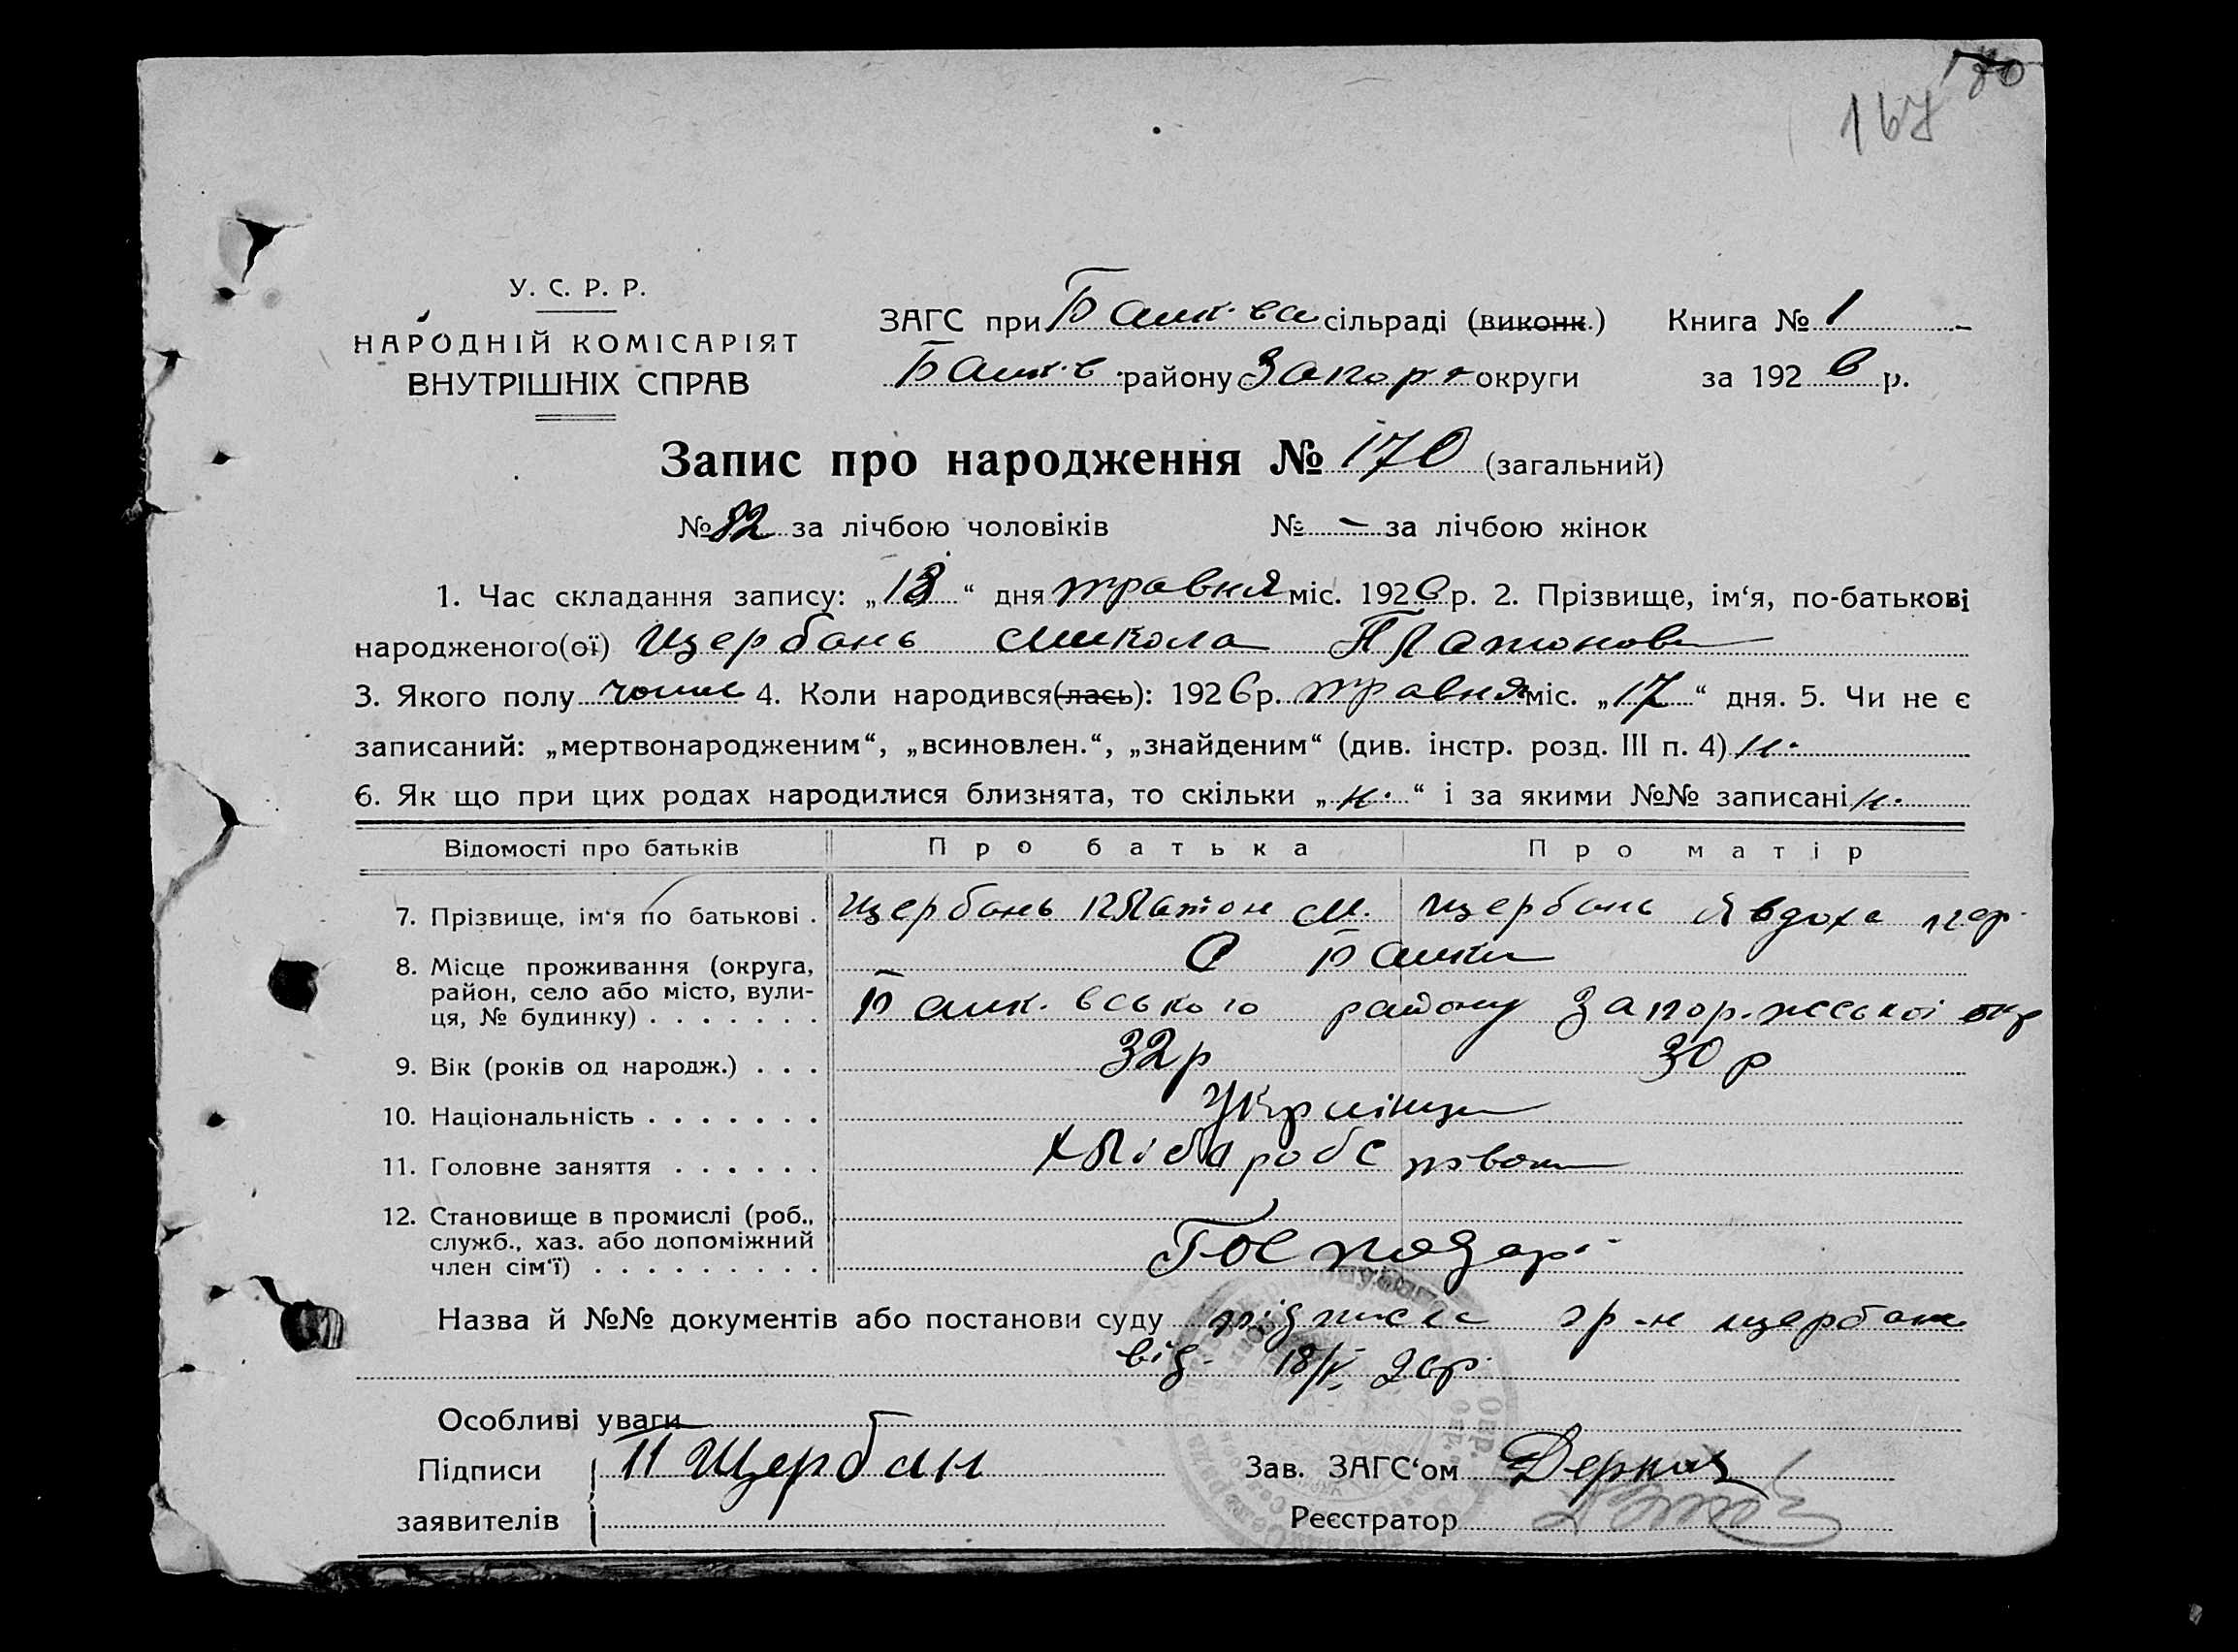 170
167
У. С. Р. Р.
НАРОДНІЙ КОМІСАРІЯТ
ВНУТРІШНІХ СПРАВ
ЗАГС при сільраді (виконк.) Книга № 1
району Запор округи за 1926 р.
Запис про народження № 170 (загальний)
№ 82 за лічбою чоловіків № – за лічбою жінок
1. Час складання запису: „18“ дня травня міс. 1926 р. 2. Прізвище, ім‘я, по-батькові
народженого(ої) Щербань Микола Платонов
3. Якого полу 4. Коли народився(лась): 1926 р. травня міс. „17“ дня. 5. Чи не є
записаний: „мертвонародженим“, „всиновлен.“, „знайденим“ (див. інстр. розд. III п. 4) н.
6. Як що при цих родах народилися близнята, то скільки „н.“ і за якими №№ записані н.
Відомості про батьків Про батька Про матір
7. Прізвище, ім‘я по батькові . Щербань Платон М. Щербань Явдоха
8. Місце проживання (округа, С
район, село або місто, вули-
ця, № будинку) . . . . . . . району Запор.жської окр
9. Вік (років од народж.) . . . 32 р 30 р
10. Національність . . . . . . . Українци
11. Головне заняття . . . . . .
12. Становище в промислі (роб.,
служб., хаз. або допоміжний
член сім‘ї) . . . . . . . . . Господар
Назва й №№ документів або постанови суду підписка гр-н Щербань
від 18/V 26р.
Особливі уваги
Підписи П Щербан Зав. ЗАГС‘ом
заявителів Реєстратор